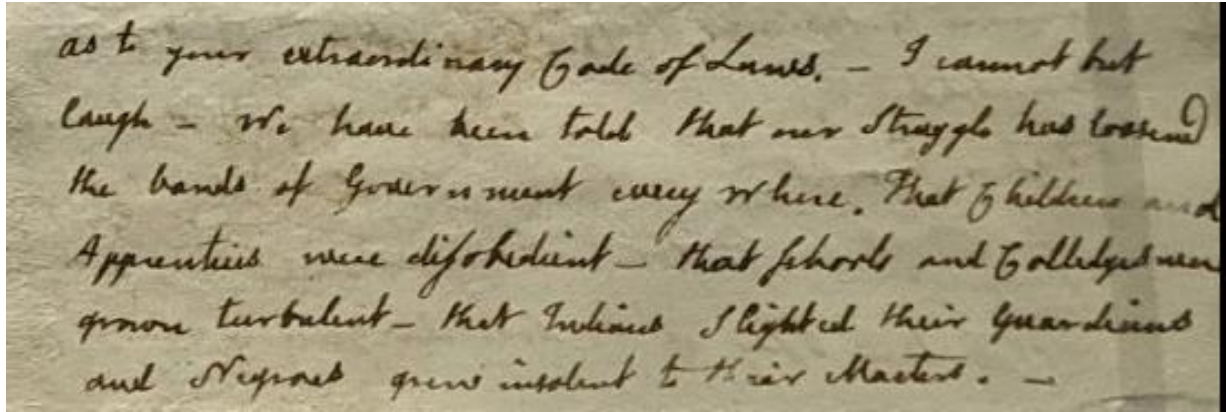 as to your extraordinary Code of Laws. — I cannot but
laugh — We have been told that our Struggle has loosened
the bands of Government every where. That Children and
Apprentices were disobedient — that schools and Colledges were
grown turbulent — that Indians slighted their Guardians
and Negroes grew insolent to their Masters. —